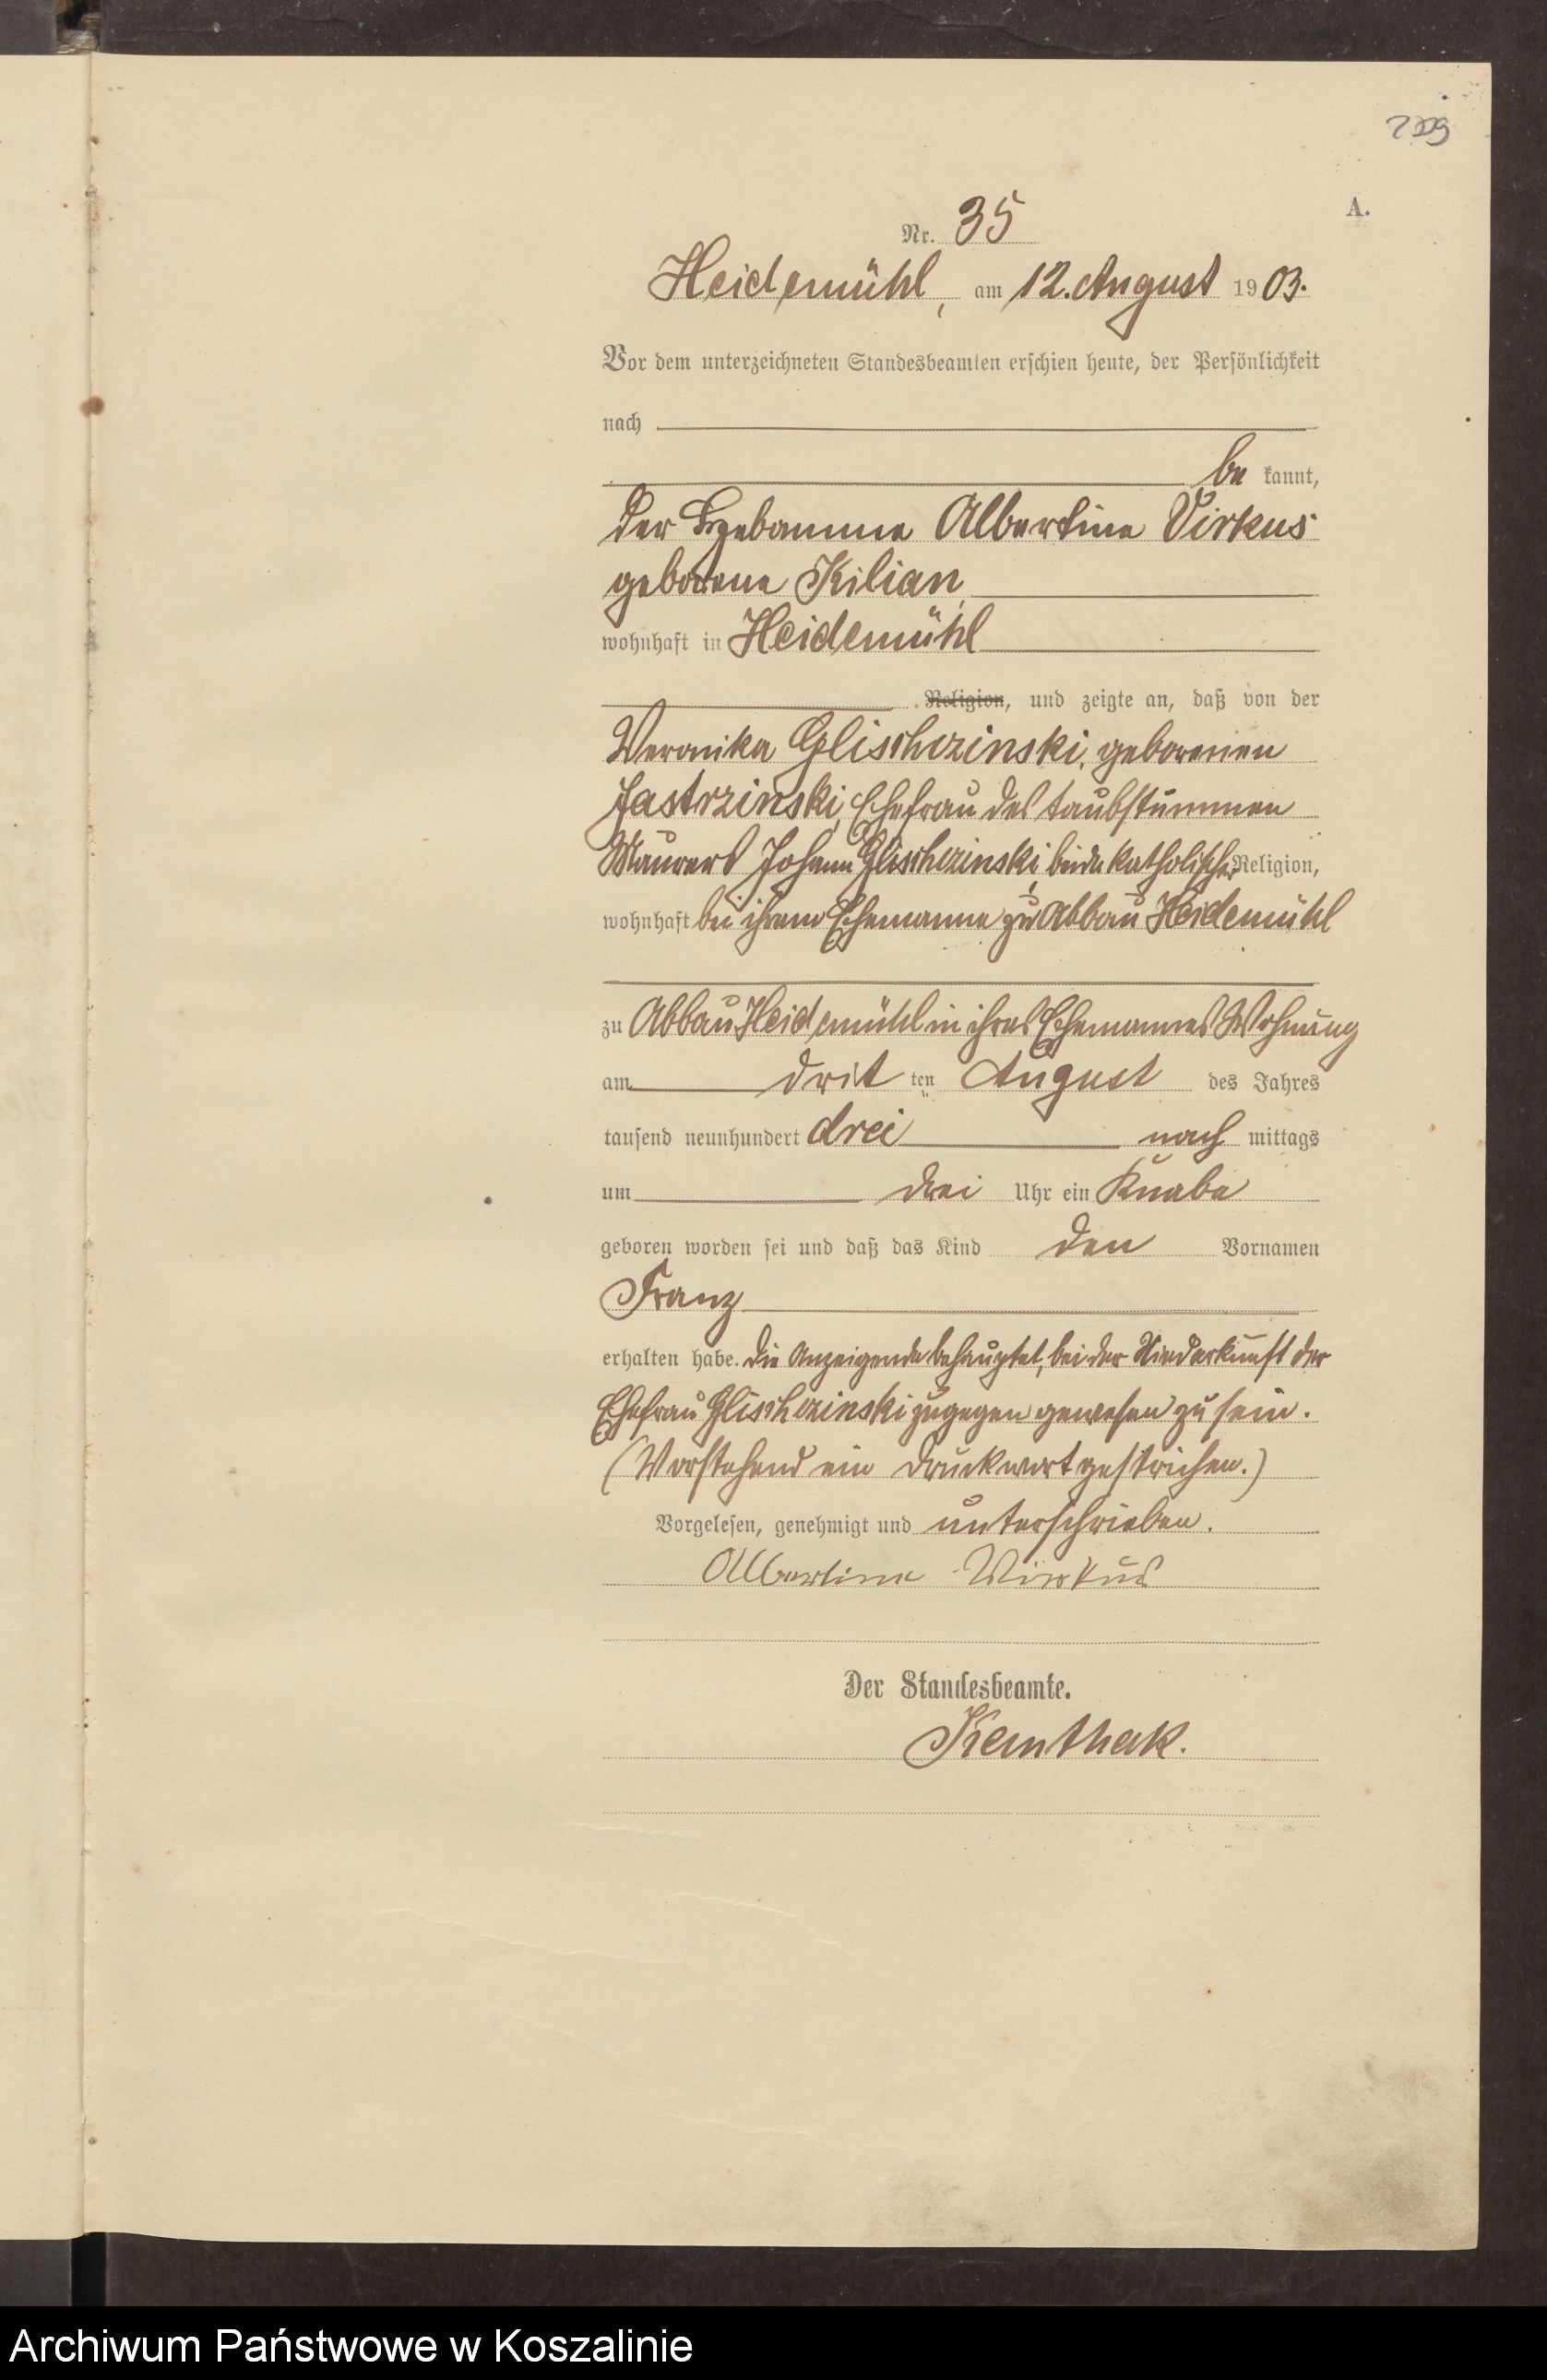 A.
Nr. 35
Heidemühl, am 12. August 1903.
Vor dem unterzeichneten Standesbeamten erschien heute, der Persönlichkeit
nach
be kannt,
der Hebamme Albertine Virkus
geborene Kilian,
wohnhaft in Heidemühl
Religion, und zeigte an, daß von der
Veronika Glischczinski, geborenen
Jastrzinski, Ehefrau des taubstummen
Maurers Johann Glischczinski, beide katholischer Religion,
wohnhaft bei ihrem Ehemanne zu Abbau Heidemühl
zu Abbau Heidemühl in ihres Ehemannes Wohnung
am drit ten August des Jahres
tausend neunhundert drei nach mittags
um drei Uhr ein Knabe
geboren worden sei und daß das Kind den Vornamen
Franz
erhalten habe. Die Anzeigende behauptet, bei der Niederkunft der
Ehefrau Glischczinski zugegen gewesen zu sein.
(Vorstehend ein Druckwort gestrichen.)
Vorgelesen, genehmigt und unterschrieben.
Albertine Wirkus
Der Standesbeamte.
Archiwum Państwowe w Koszalinie